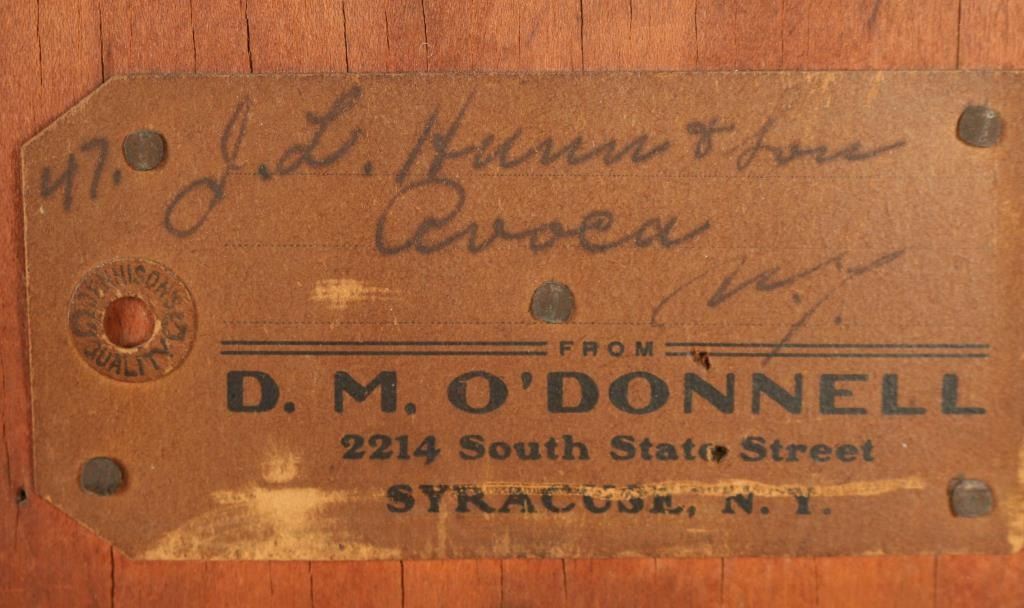 47. J. L. Hunn & Son
Avoca
N.Y.
DENNISON'S
QUALITY
FROM
D. M. O'DONNELL
2214 South State Street
SYRACUSE, N. Y.